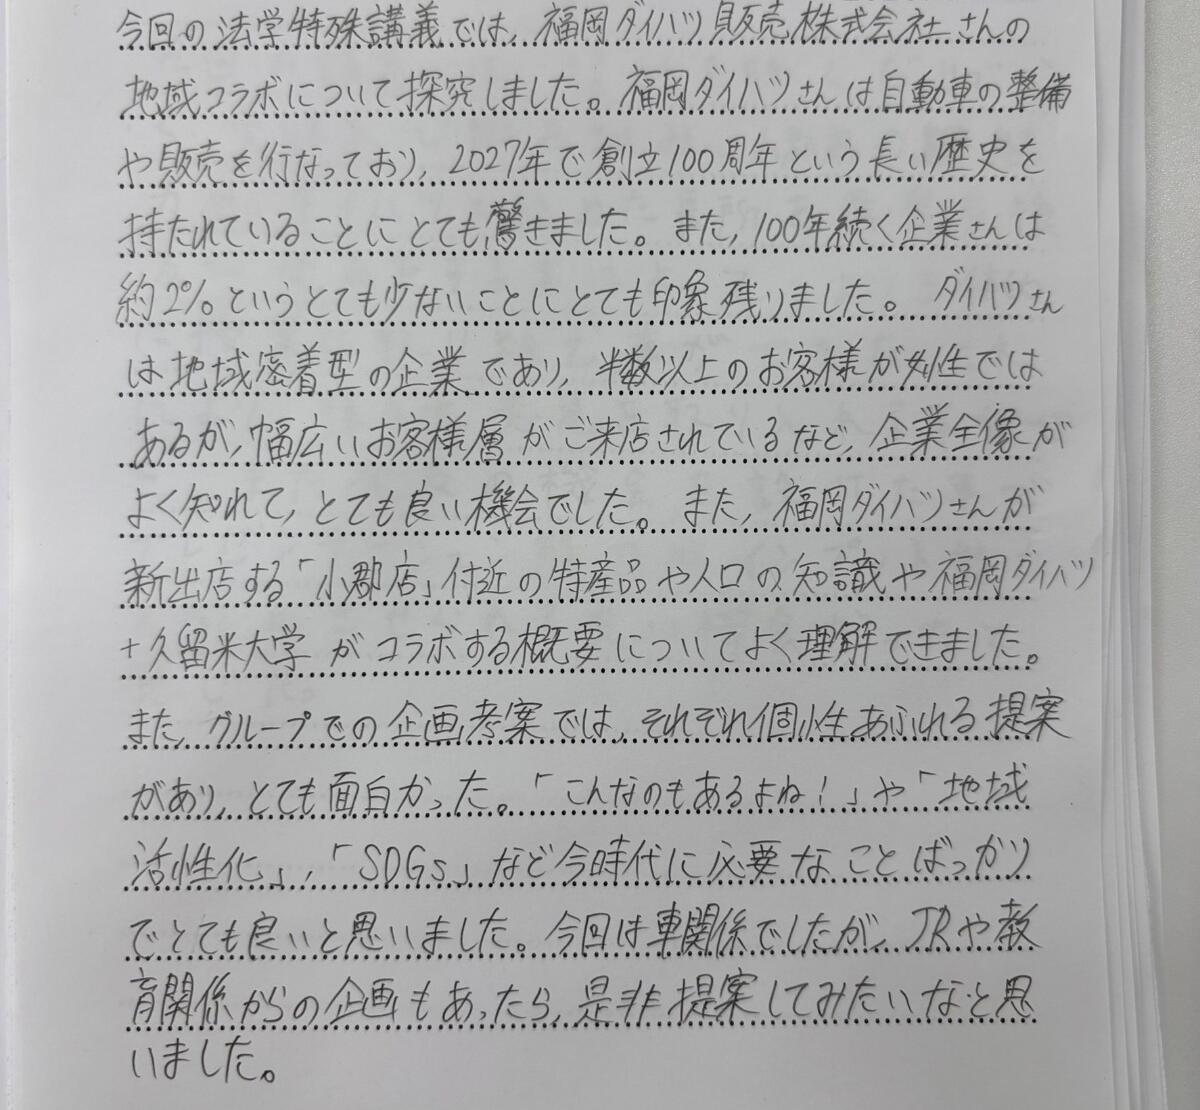 今回の法学特殊講義では、福岡ダイハツ販売株式会社さんの
地域コラボについて探究しました。福岡ダイハツさんは自動車の整備
や販売を行なっており、2027年で創立100周年という長い歴史を
持たれていることにとても驚きました。また、100年続く企業さんは
約2%というとても少ないことにとても印象残りました。ダイハツさん
は地域密着型の企業であり、半数以上のお客様が女性では
あるが、幅広いお客様層がご来店されているなど、企業全像が
よく知れて、とても良い機会でした。また、福岡ダイハツさんが
新出店する「小郡店」付近の特産品や人口の知識や福岡ダイハツ
+久留米大学がコラボする概要についてよく理解できました。
また、グループでの企画考案では、それぞれ個性あふれる提案
があり、とても面白かった。「こんなのもあるよね!」や「地域
活性化」、「SDGs」など今時代に必要なことばっかり
でとても良いと思いました。今回は車関係でしたが、JRや教
育関係からの企画もあったら、是非提案してみたいなと思
いました。